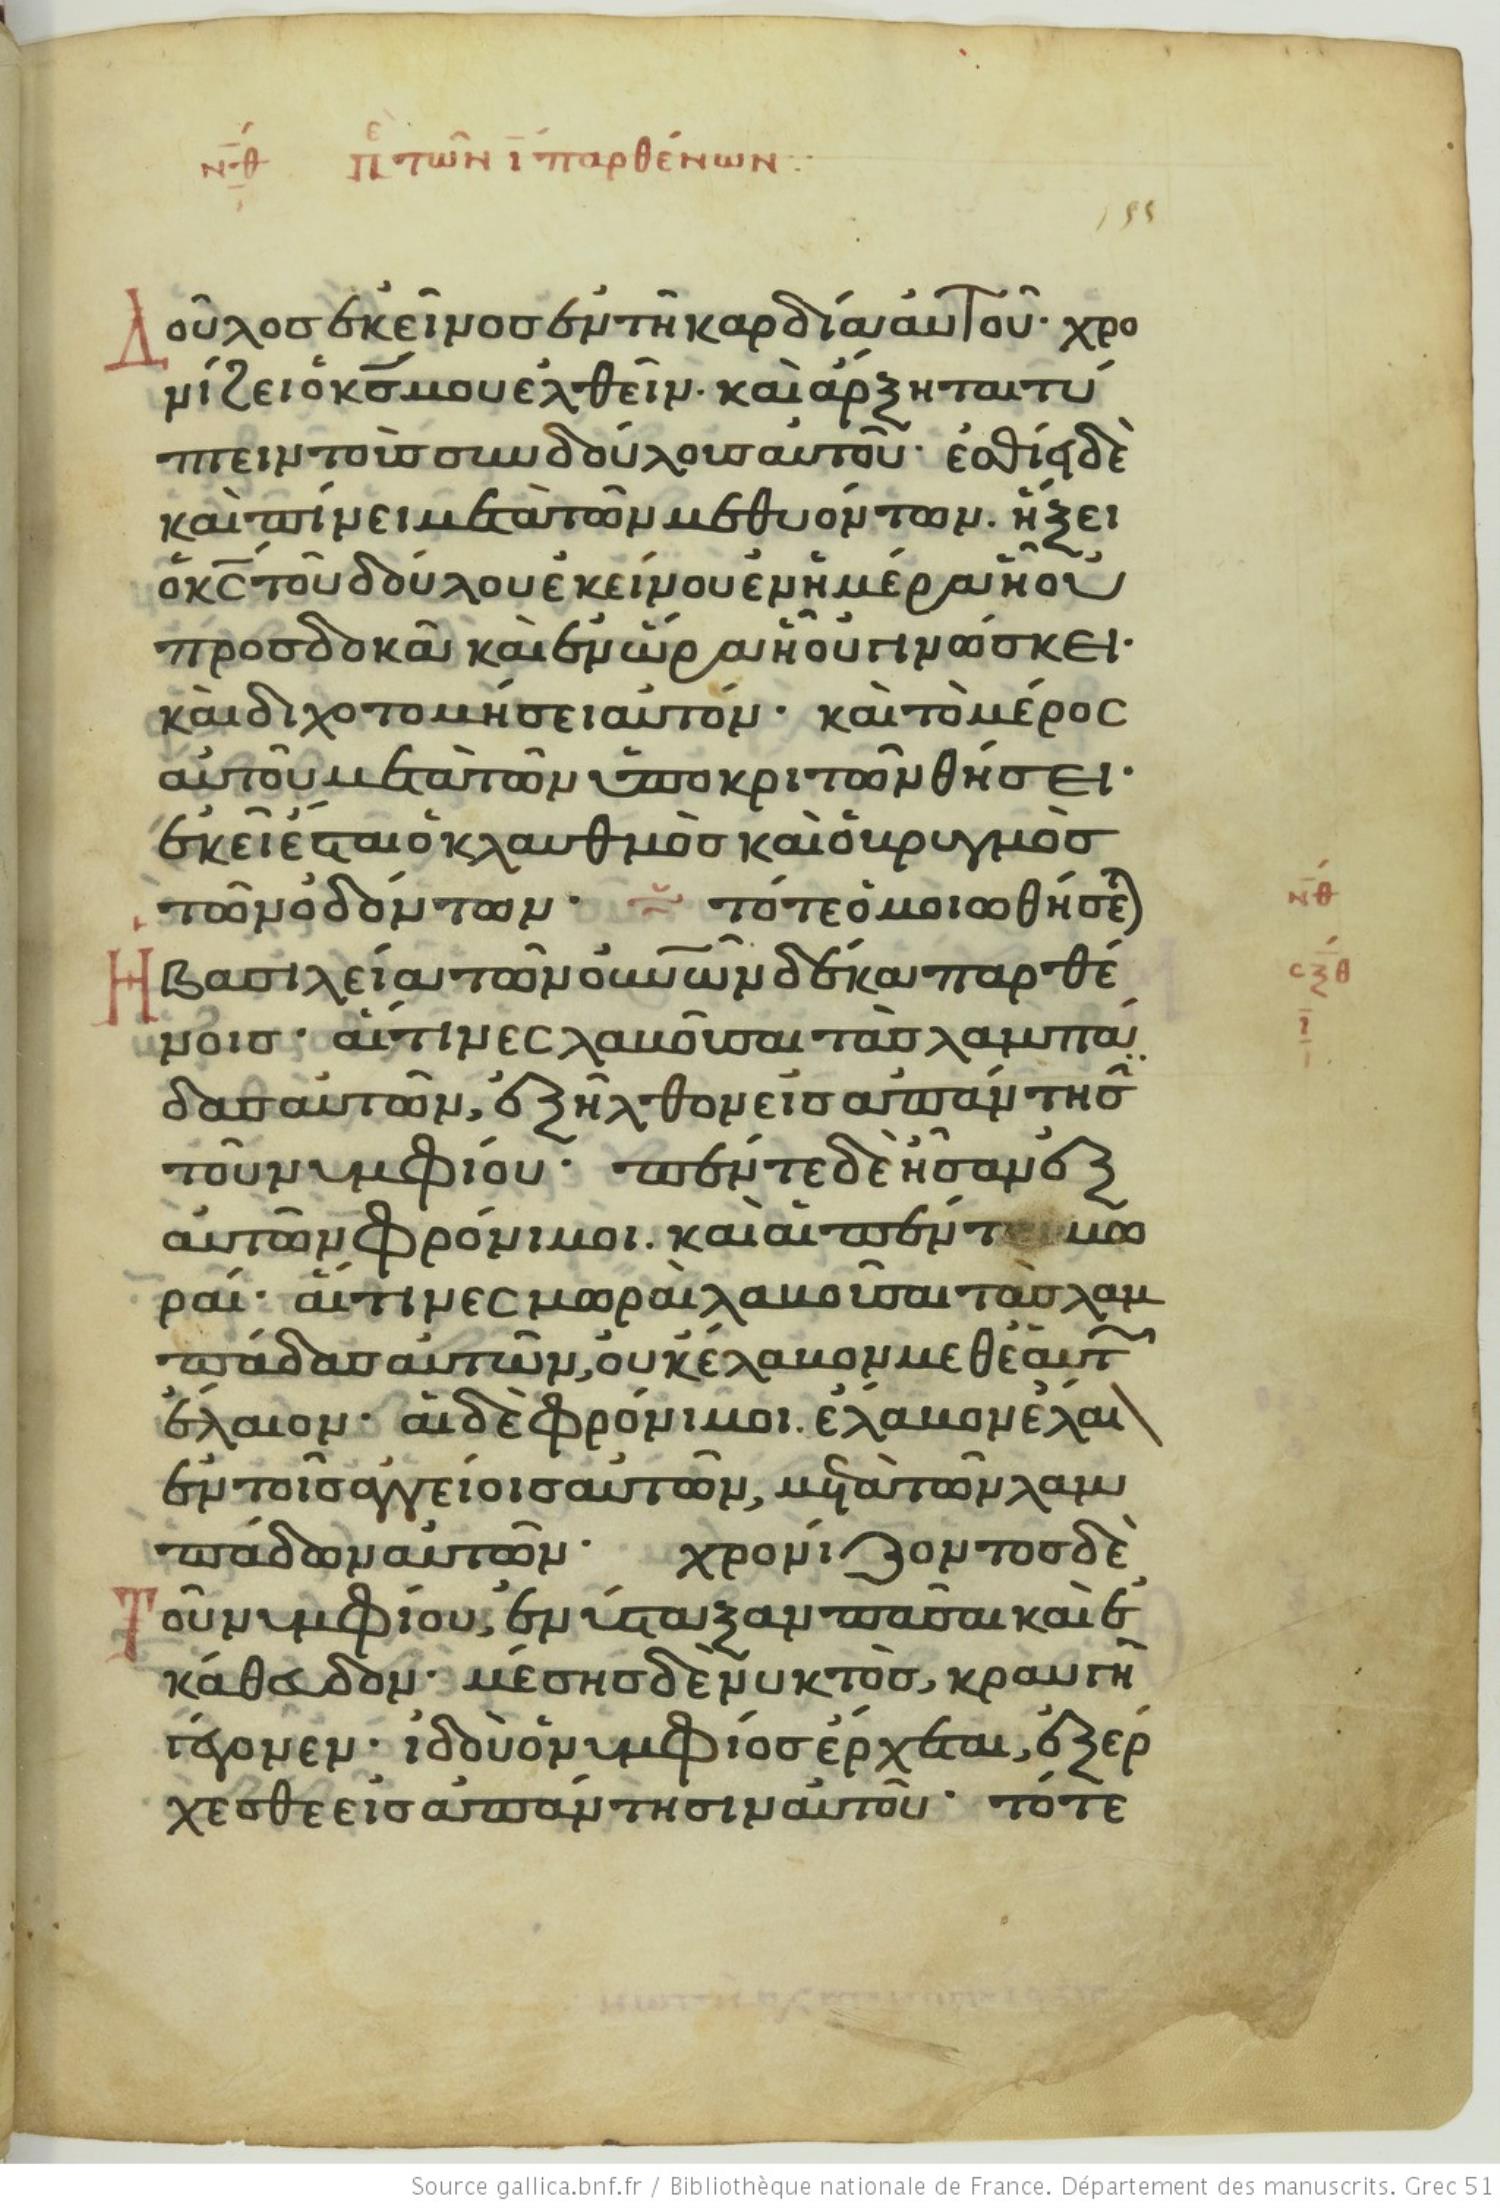 νθ πε των ι παρθένων
155
Δοῦλος ἐκεῖνος ἐν τῆ καρδία αὐτοῦ· χρο
νίζει ὁ κς μου ἐλθεῖν· καὶ ἄρξηται τύ
πτειν τοὺς συνδούλους αὐτοῦ· ἐσθίει δὲ
καὶ πίνει μετὰ τῶν μεθυόντων· ἥξει
ὁ κς τοῦ δούλου ἐκείνου ἐν ἡμέρα ἧ οὐ
προσδοκᾶ καὶ ἐν ὥρα ἧ οὐ γινώσκει·
καὶ διχοτομήσει αὐτόν· καὶ τὸ μέρος
αὐτοῦ μετὰ τῶν ὑποκριτῶν θήσει·
ἐκεῖ ἔσται ὁ κλαυθμὸς καὶ ὁ βρυγμὸς
τῶν ὀδόντων· τότε ὁμοιωθήσε νθ
Ἡ βασιλεία τῶν οὐνῶν δέκα παρθέ σξθ
νοις· αἵτινες λαβοῦσαι τὰς λαμπά ι
δας αὐτῶν, ἐξῆλθον εἰς ἀπάντησ
τοῦ νυμφίου· πέντε δὲ ἦσαν ἐξ
αὐτῶν φρόνιμοι· καὶ αἱ πέντε μω
ραί· αἵτινες μωραὶ λαβοῦσαι τὰς λαμ
πάδας αὐτῶν, οὐκ ἔλαβον μεθ ἑαυτ
ἔλαιον· αἱ δὲ φρόνιμοι· ἔλαβον ἔλαι
ἐν τοῖς ἀγγείοις αὐτῶν, μετὰ τῶν λαμ
πάδων αὐτῶν· χρονίζοντος δὲ
Τοῦ νυμφίου, ἐνύσταξαν πᾶσαι καὶ ἐ
κάθευδον· μέσης δὲ νυκτὸς, κραυγὴ
γέγονεν· ἰδοὺ ὁ νυμφίος ἔρχεται, ἐξέρ
χεσθε εἰς ἀπάντησιν αὐτοῦ· τότε
Source gallica.bnf.fr / Bibliothèque nationale de France. Département des manuscrits. Grec 51